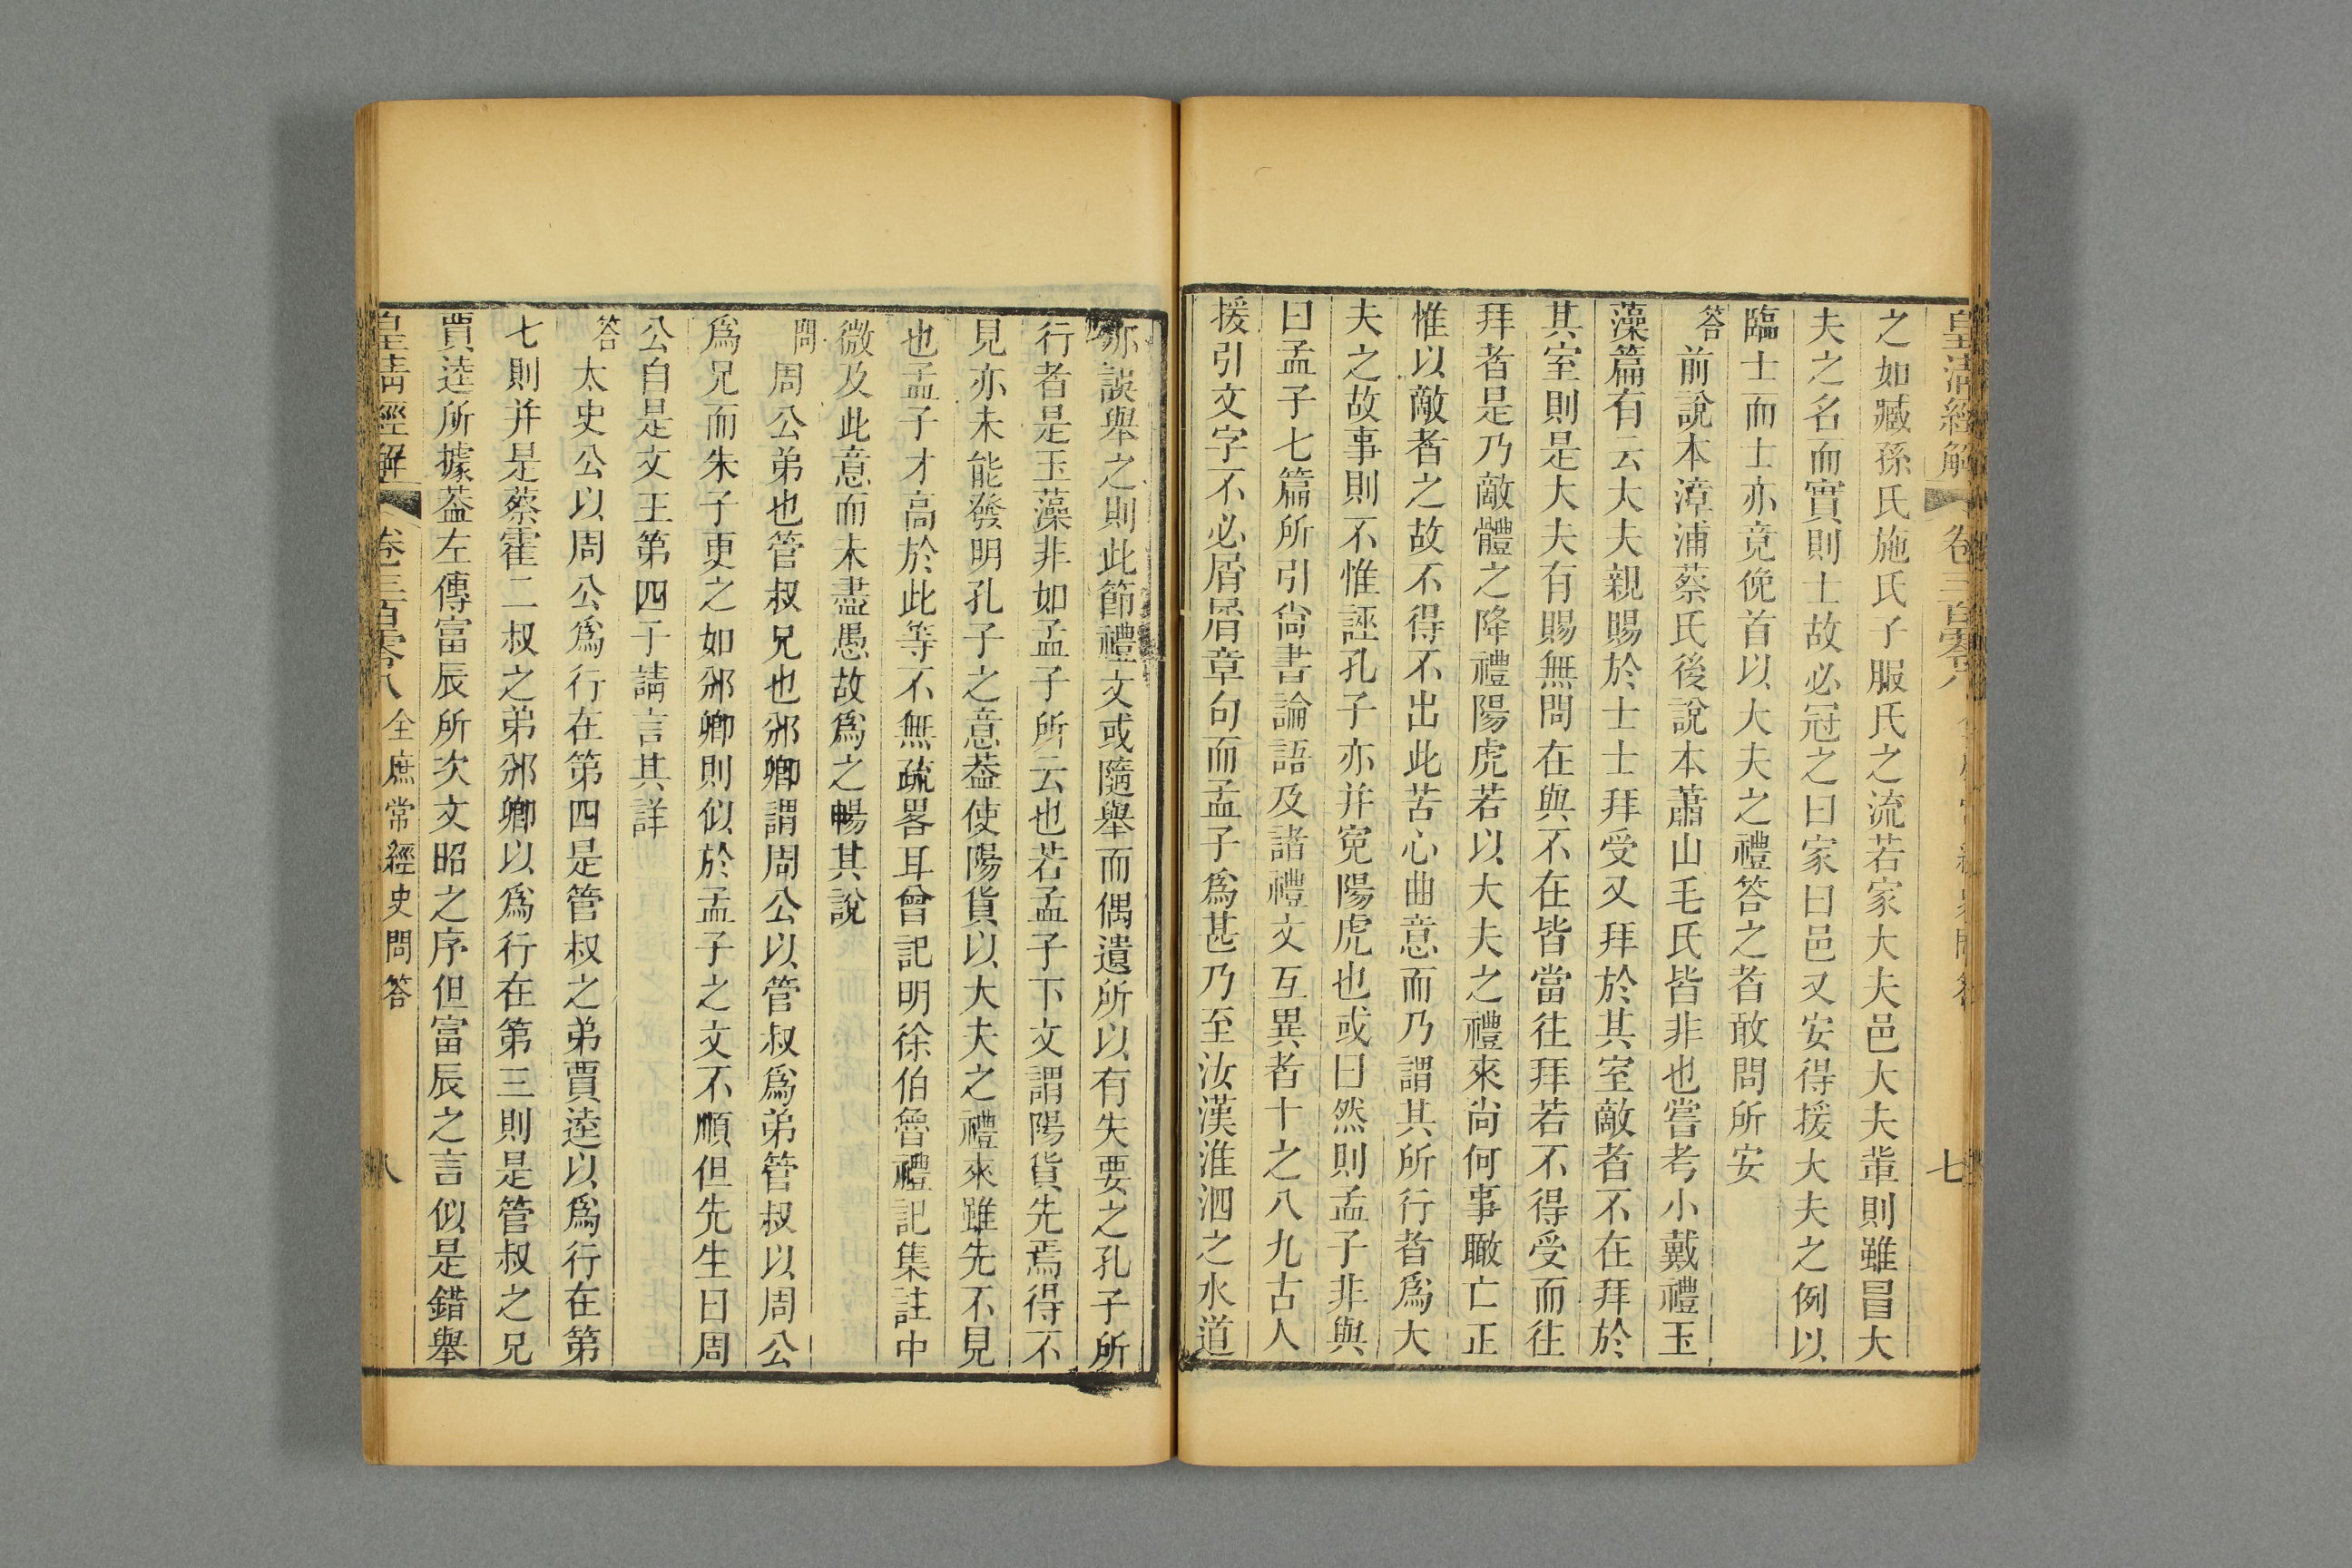 皇清經解 卷三百零八 七
之如臧孫氏施氏子服氏之流若家大夫邑大夫輩則雖冒大
夫之名而實則士故必冠之曰家曰邑又安得援大夫之例以
臨士而士亦竟俛首以大夫之禮答之者敢問所安
答前說本漳浦蔡氏後說本蕭山毛氏皆非也嘗考小戴禮玉
藻篇有云大夫親賜於士士拜受又拜於其室敵者不在拜於
其室則是大夫有賜無問在與不在皆當往拜若不得受而往
拜者是乃敵體之降禮陽虎若以大夫之禮來尚何事瞰亡正
惟以敵者之故不得不出此苦心曲意而乃謂其所行者為大
夫之故事則不惟誣孔子亦并寃陽虎也或曰然則孟子非與
曰孟子七篇所引尙書論語及諸禮文互異者十之八九古人
援引文字不必屑屑章句而孟子為甚乃至汝漢淮泗之水道
亦誤舉之則此節禮文或隨舉而偶遺所以有失要之孔子所
行者是玉藻非如孟子所云也若孟子下文謂陽貨先焉得不
見亦未能發明孔子之意葢使陽貨以大夫之禮來雖先不見
也孟子才高於此等不無疏畧耳曾記明徐伯魯禮記集註中
微及此意而未盡愚故為之暢其說
問周公弟也管叔兄也邠卿謂周公以管叔為弟管叔以周公
為兄而朱子更之如邠卿則似於孟子之文不順但先生曰周
公自是文王第四子請言其詳
答太史公以周公為行在第四是管叔之弟賈逵以為行在第
七則并是蔡霍二叔之弟邠卿以為行在第三則是管叔之兄
賈逵所據葢左傳富辰所次文昭之序但富辰之言似是錯舉
皇清經解 卷三百零八 全庶常經史問答 八